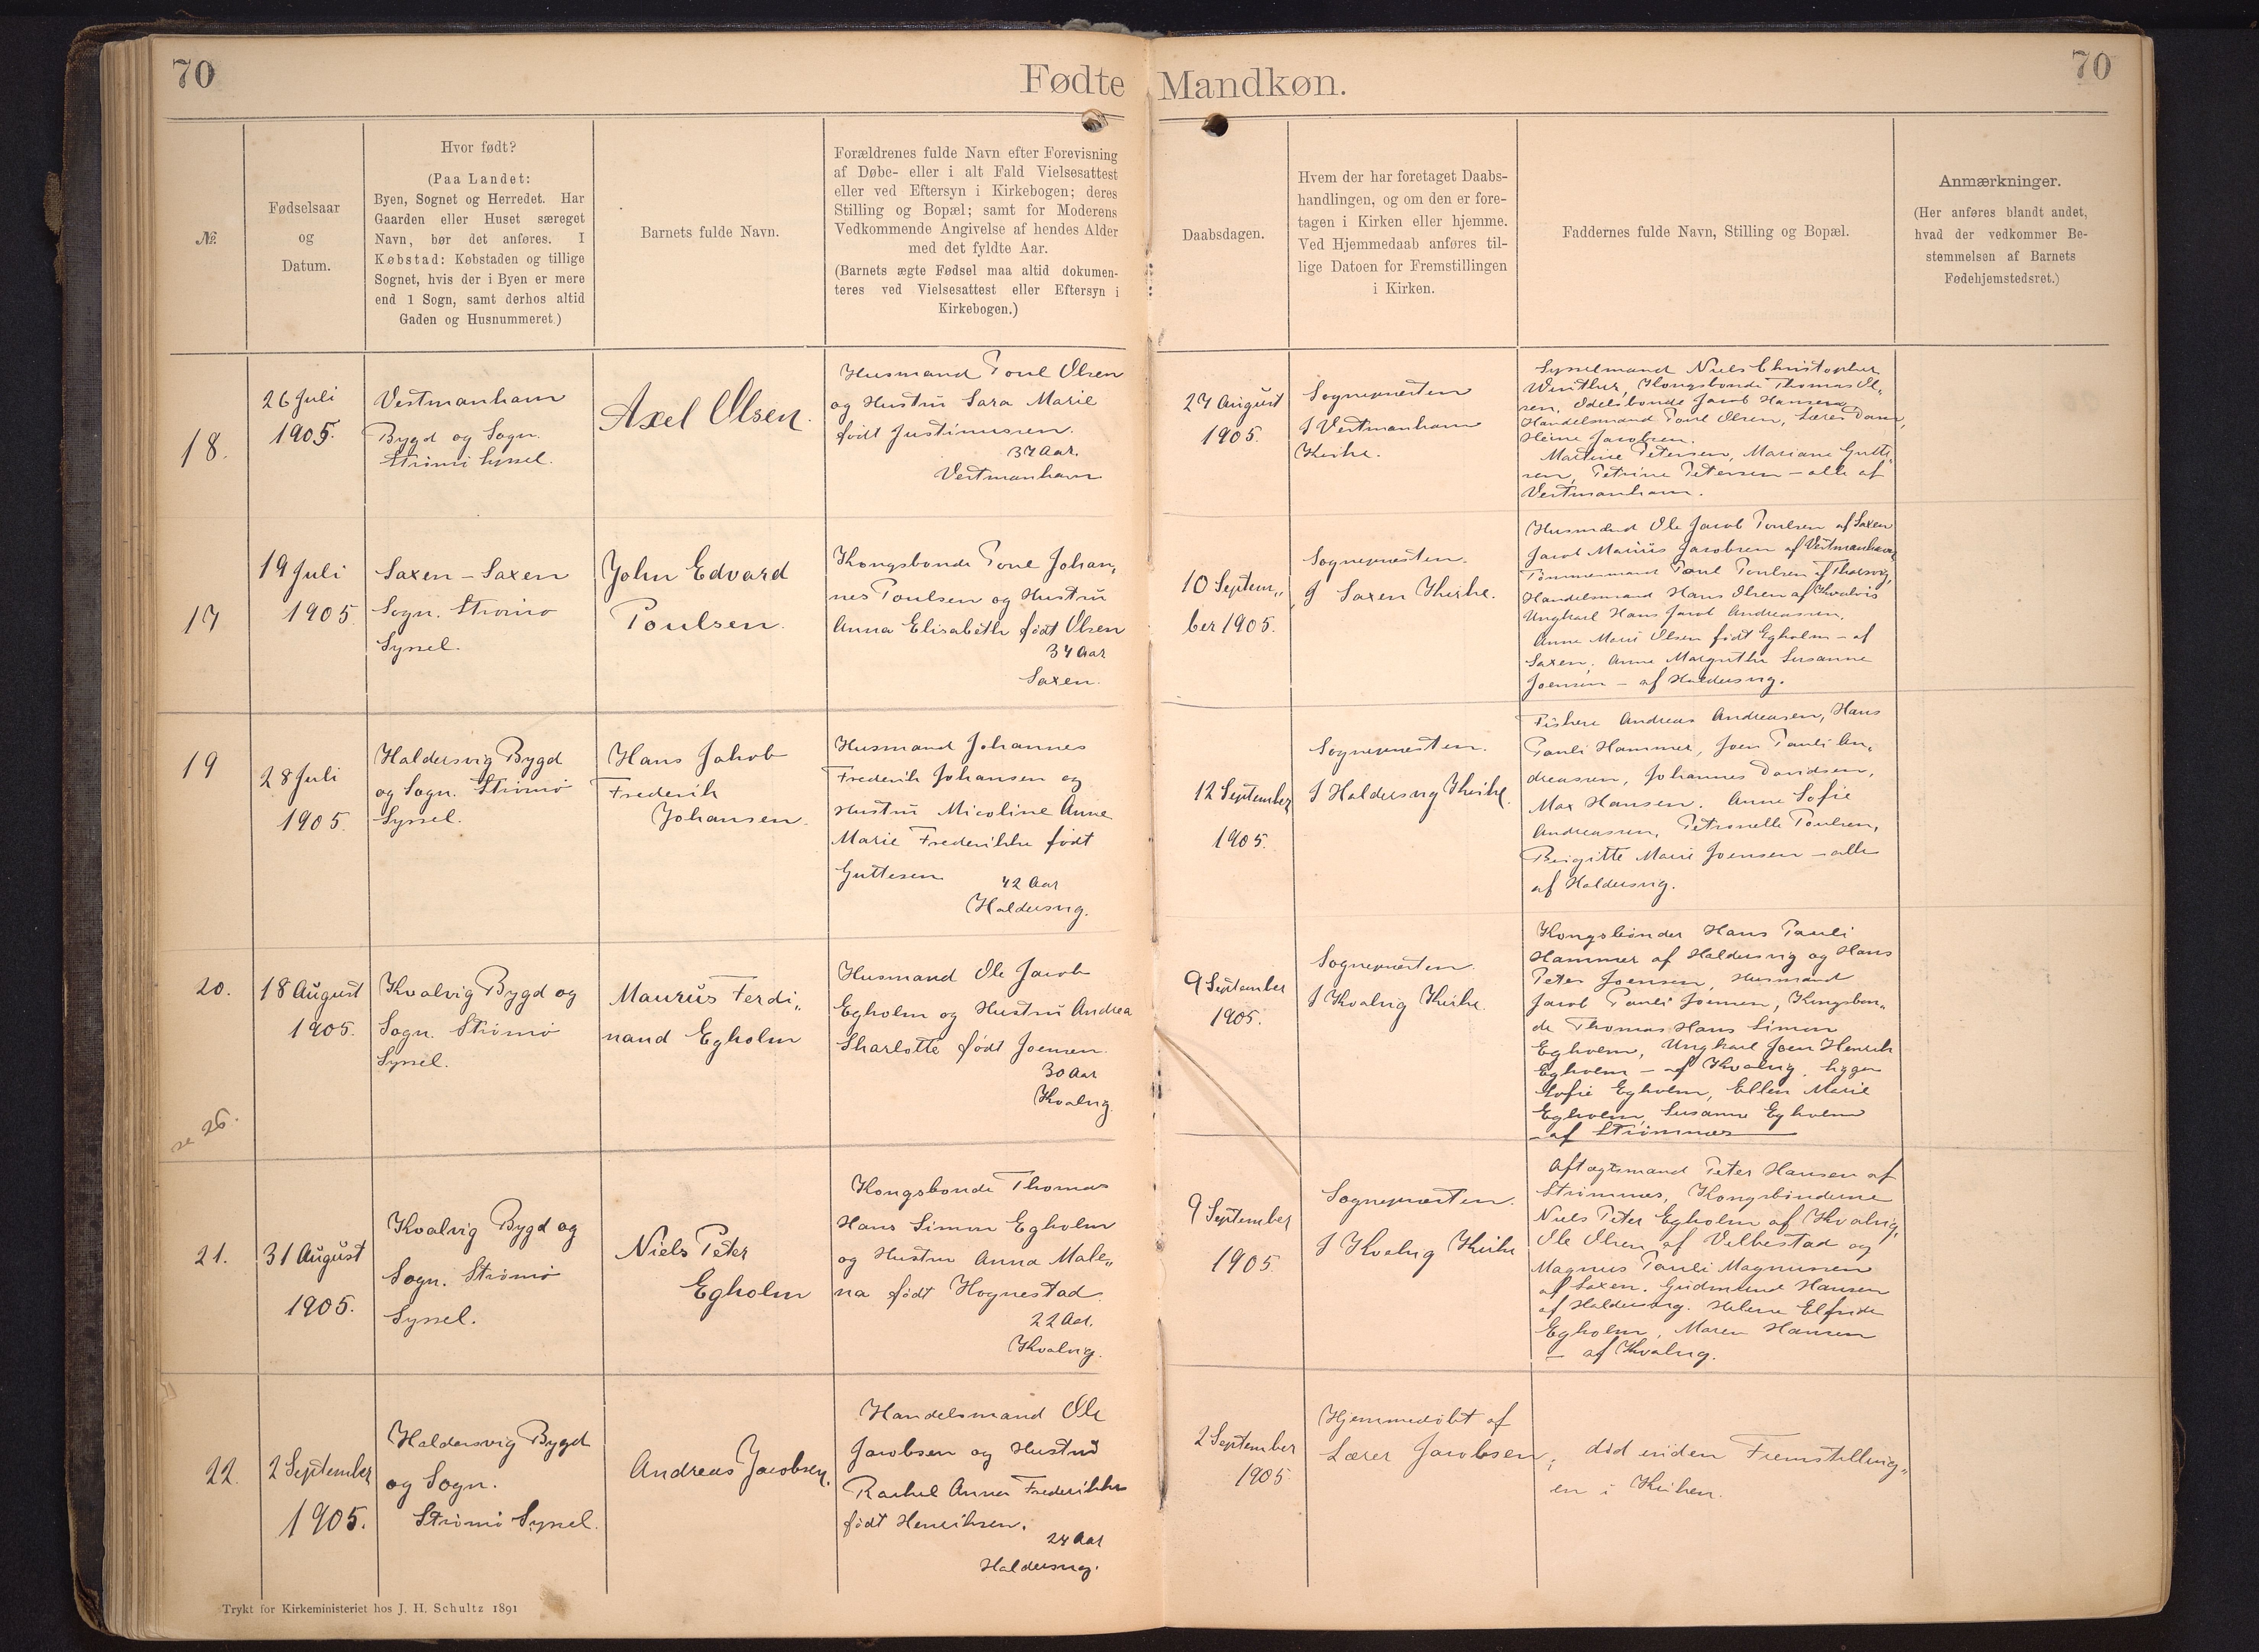 70
Fødte Mandkøn.
70
№.
Fødselsaar
og
Datum.
Hvor født?
(Paa Landet:
Byen, Sognet og Herredet. Har
Gaarden eller Huset særeget
Navn, bør det anføres. I
Købstad: Købstaden og tillige
Sognet, hvis der i Byen er mere
end 1 Sogn, samt derhos altid
Gaden og Husnummeret.)
Barnets fulde Navn.
Forældrenes fulde Navn efter Forevisning
af Døbe- eller i alt Fald Vielsesattest
eller ved Eftersyn i Kirkebogen; deres
Stilling og Bopæl; samt for Moderens
Vedkommende Angivelse af hendes Alder
med det fyldte Aar.
(Barnets ægte Fødsel maa altid dokumen-
teres ved Vielsesattest eller Eftersyn i
Kirkebogen.)
Daabsdagen.
Hvem der har foretaget Daabs-
handlingen, og om den er fore-
tagen i Kirken eller hjemme.
Ved Hjemmedaab anføres til-
lige Datoen for Fremstillingen
i Kirken.
Faddernes fulde Navn, Stilling og Bopæl.
Anmærkninger.
(Her anføres blandt andet,
hvad der vedkommer Be-
stemmelsen af Barnets
Fødehjemstedsret.)
18.
26 Juli
1905.
Vestmanhavn
Bygd og Sogn.
Strømø Syssel.
Axel Olsen.
Husmand Poul Olsen
og Hustru Sara Marie
født Justinussen.
37 Aar.
Vestmanhavn
27 August
1905.
Sognepræsten
I Vestmanhavn
Kirke.
Sysselmand Niels Christopher
Winther, Kongsbonde Thomas Ol„
sen, Odelsbonde Jacob Hansen,
Handelsmand Poul Olsen, Lærer Dan„
Heine Jacobsen.
Martine Petersen, Mariane Gutte„
sen, Petrine Petersen – alle af
Vestmanhavn.
17
19 Juli
1905
Saxen – Saxen
Sogn. Strømø
Syssel.
John Edvard
Poulsen.
Kongsbonde Poul Johan„
nes Poulsen og Hustru
Anna Elisabeth født Olsen
37 Aar
Saxen.
10 Septem„
ber 1905.
Sognepræsten.
I Saxen Kirke.
Husmænd Ole Jacob Poulsen af Saxen
Jacob Marius Jacobsen af Vestmanhavn
Tømmermand Poul Poulsen af Thorsvig,
Handelsmand Hans Olsen af Kvalvig
Ungkarl Hans Jacob Andreassen,
Anne Marie Olsen født Egholm – af
Saxen, Anne Margrethe Susanne
Joensen – af Haldersvig.
19
28 Juli
1905.
Haldersvig Bygd
og Sogn. Strømø
Syssel.
Hans Jakob
Frederik
Johansen.
Husmand Johannes
Frederik Johansen og
Hustru Micoline Anne
Marie Frederikke født
Guttesen
42 Aar
Haldersvig.
12 September
1905.
Sognepræsten.
I Haldersvig Kirke.
Fiskere Andreas Andreasen, Hans
Pauli Hammer, Joen Pauli An„
dreasen, Johannes Davidsen,
Max Hansen. Anne Sofie
Andreasen, Petronelle Poulsen,
Birgitte Marie Joensen – alle
af Haldersvig.
20.
18 August
1905.
Kvalvig Bygd og
Sogn. Strømø
Syssel.
Maurus Ferdi„
nand Egholm
Husmand Ole Jacob
Egholm og Hustru Andrea
Sharlotte født Joensen.
30 Aar
Kvalvig
9 September
1905.
Sognepræsten.
I Kvalvig Kirke.
Kongsbønder Hans Pauli
Hammer af Haldersvig og Hans
Peter Joensen, Husmand
Jacob Pauli Joensen, Kongsbon„
de Thomas Hans Simon
Egholm, Ungkarl Joen Henrik
Egholm – af Kvalvig.
Sofie Egholm, Ellen Marie
Egholm, Susanne Egholm
– af Strømnæs
se 26.
21.
31 August
1905.
Kvalvig Bygd og
Sogn. Strømø
Syssel.
Niels Peter
Egholm
Kongsbonde Thomas
Hans Simon Egholm
og Hustru Anna Male„
na født Høgnestad
22 Aar.
Kvalvig.
9 September
1905
Sognepræsten.
I Kvalvig Kirke
Aftægtsmand Peter Hansen af
Strømnæs, Kongsbønderne
Niels Peter Egholm af Kvalvig,
Ole Olsen af Velbestad og
Magnus Pauli Magnussen
af Saxen. Gudmund Hansen
af Haldersvig. Helene Elfride
Egholm, Maren Hansen
– af Kvalvig.
22.
2 September
1905.
Haldersvig Bygd
og Sogn.
Strømø Syssel.
Andreas Jacobsen.
Handelsmand Ole
Jacobsen og Hustru
Rachel Anna Frederikke
født Henriksen.
24 Aar
Haldersvig.
2 September
1905
Hjemmedøbt af
Lærer Jacobsen;
død inden Fremstilling„
en i Kirken.
Trykt for Kirkeministeriet hos J. H. Schultz 1891